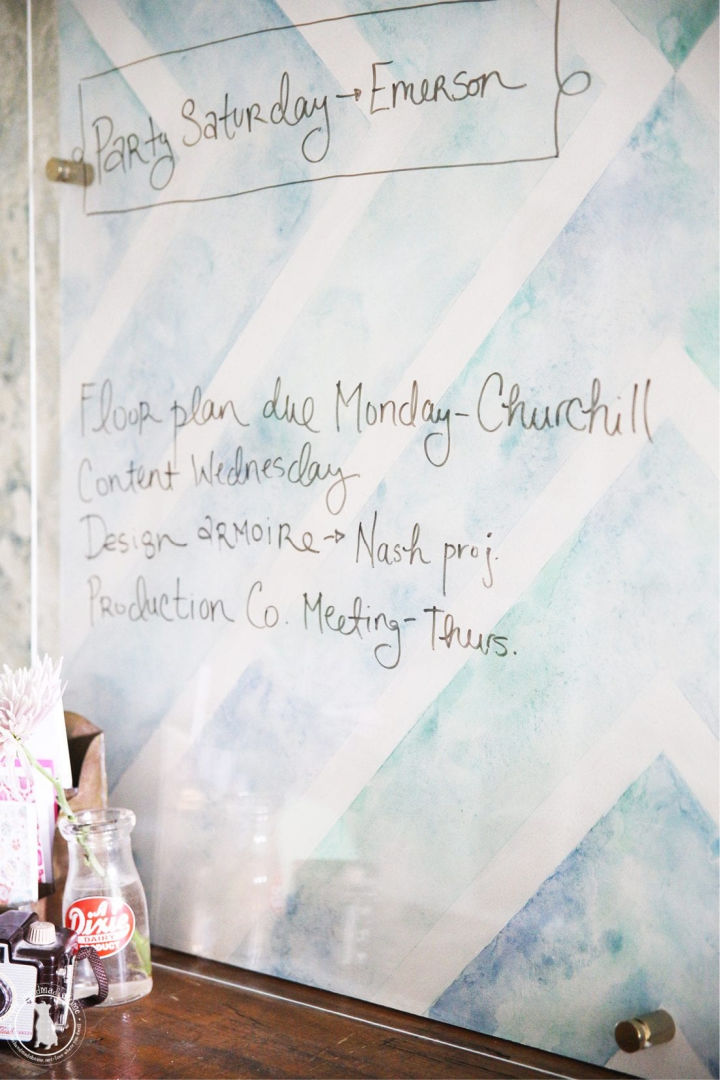 Party Saturday → Emerson
Floor plan due Monday - Churchill
Content Wednesday
Design armoire → Nash proj.
Production Co. Meeting - Thurs.
Dixie
DAIRY
PRODUCT